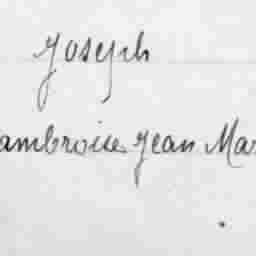 Joseph
ambroise Jean Mar